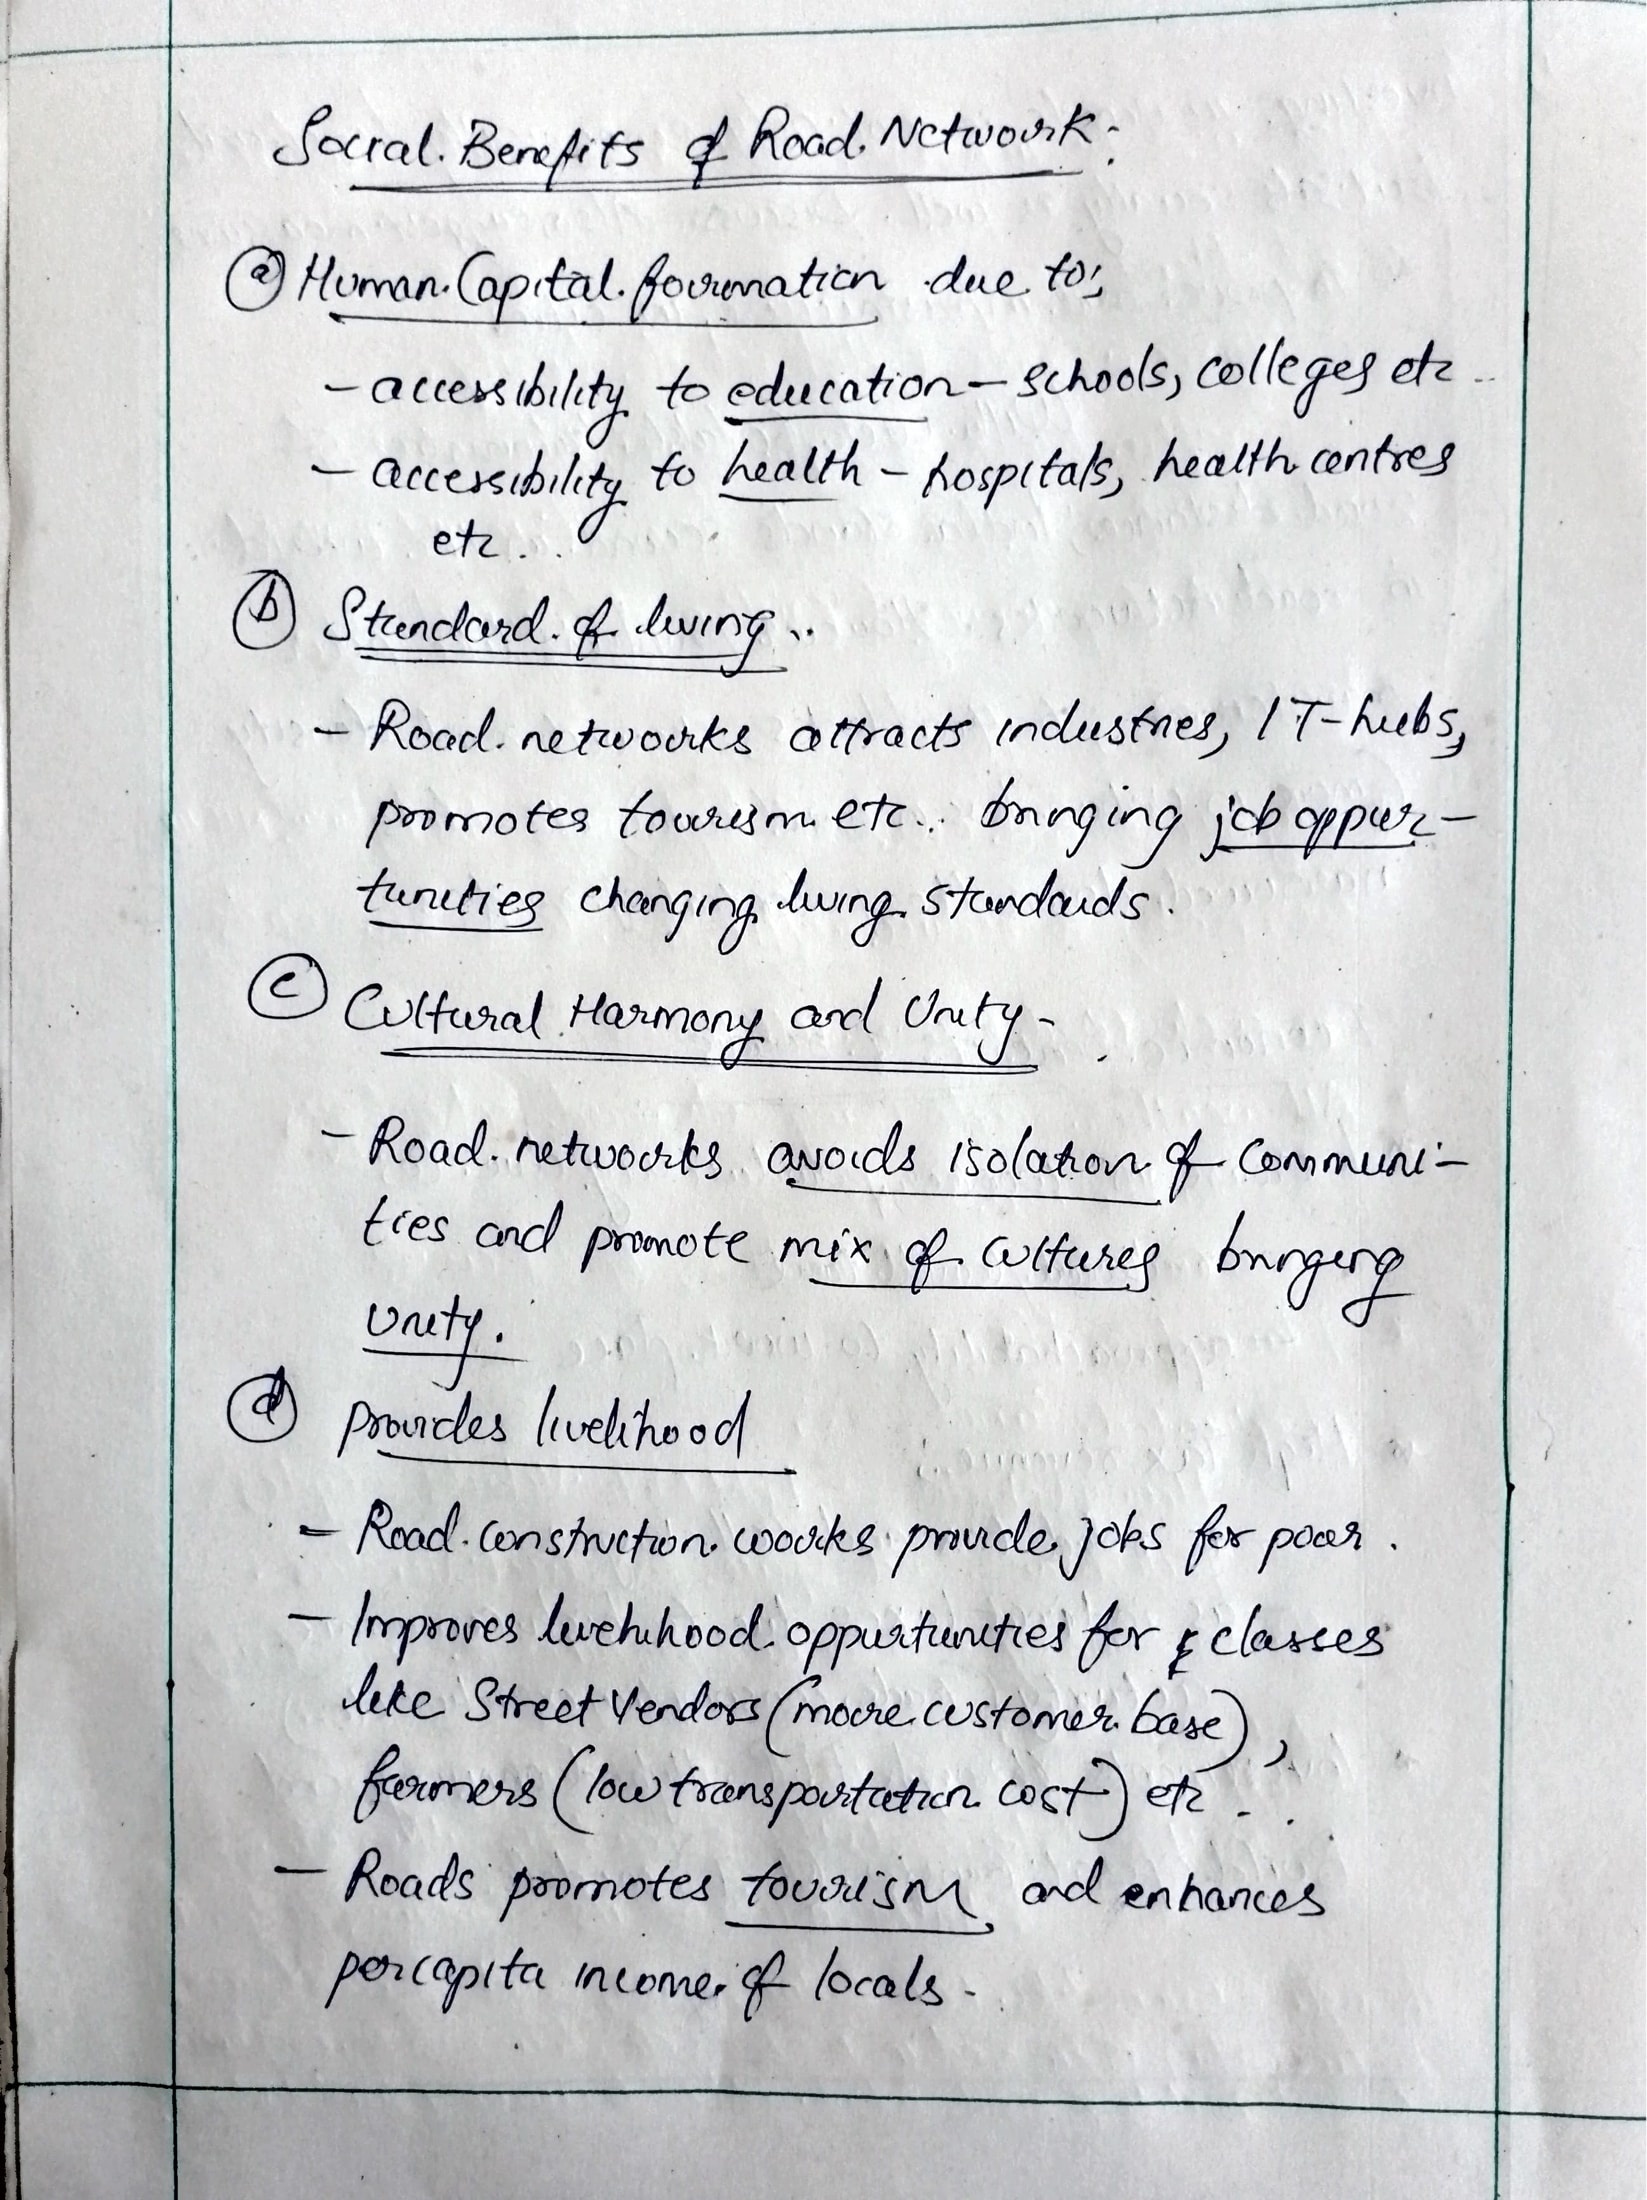 Social Benefits of Road Network:
(a) Human Capital formation due to;
- accessibility to education - schools, colleges etc..
- accessibility to health - hospitals, health centres
etc...
(b) Standard of living..
- Road networks attracts industries, IT-hubs,
promotes tourism etc.. bringing job oppur-
tunities changing living standards.
(c) Cultural Harmony and Unity-
- Road networks avoids isolation of communi-
ties and promote mix of cultures bringing
unity.
(d) provides livelihood
- Road construction works provide jobs for poor.
- Improves livelihood oppurtunities for classes
like Street Vendors (more customer base),
farmers (low transportation cost) etc..
- Roads promotes tourism and enhances
percapita income of locals.